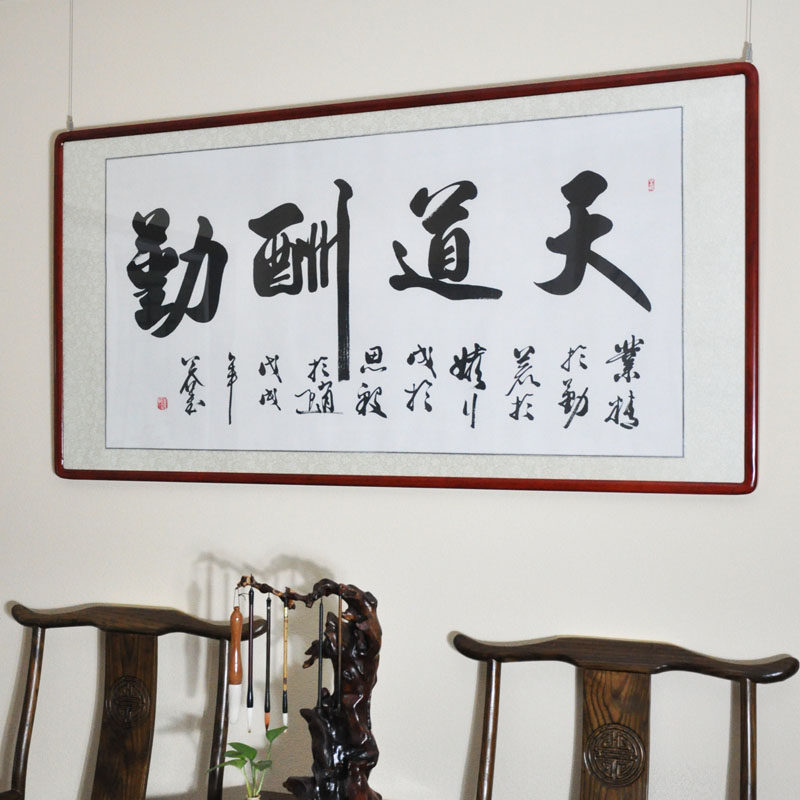 天道酬勤
業精
於勤
荒於
嬉行
成於
思毀
於隨
戊戌
年